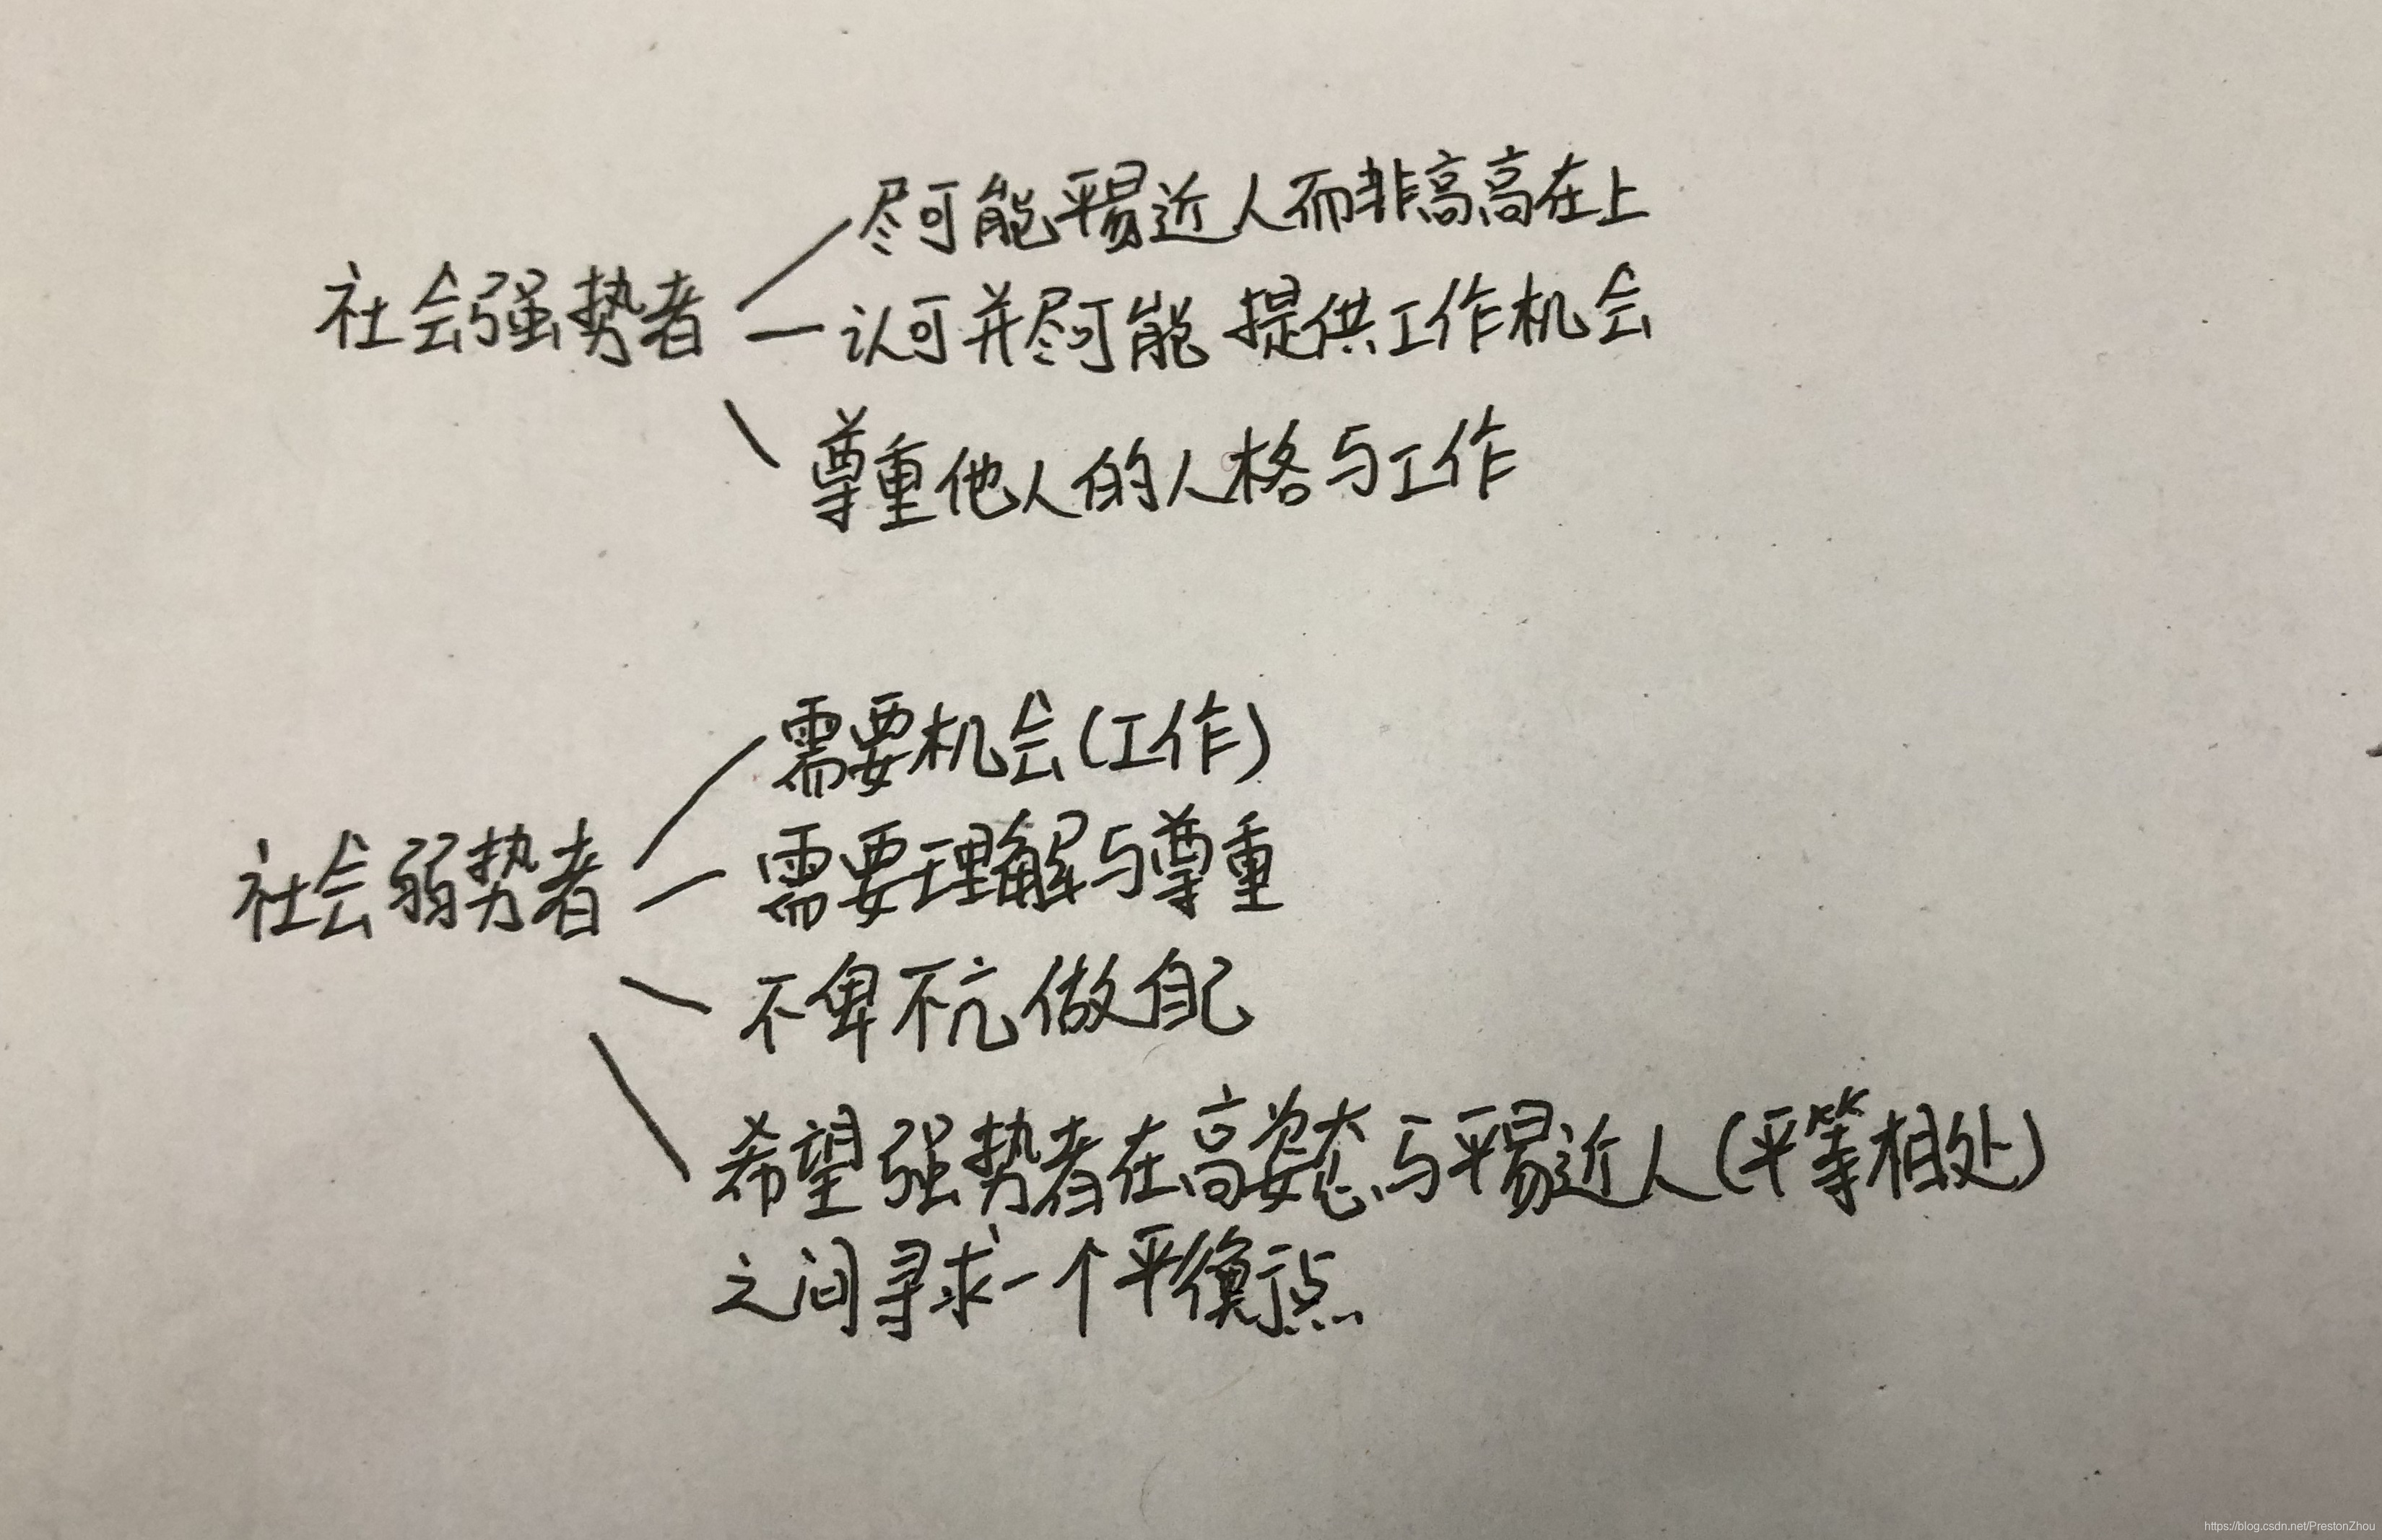 尽可能平易近人而非高高在上
社会强势者
认可并尽可能提供工作机会
尊重他人的人格与工作
需要机会(工作)
社会弱势者
需要理解与尊重
不卑不亢做自己
希望强势者在高姿态与平易近人(平等相处)
之间寻求一个平衡点
https://blog.csdn.net/PrestonZhou